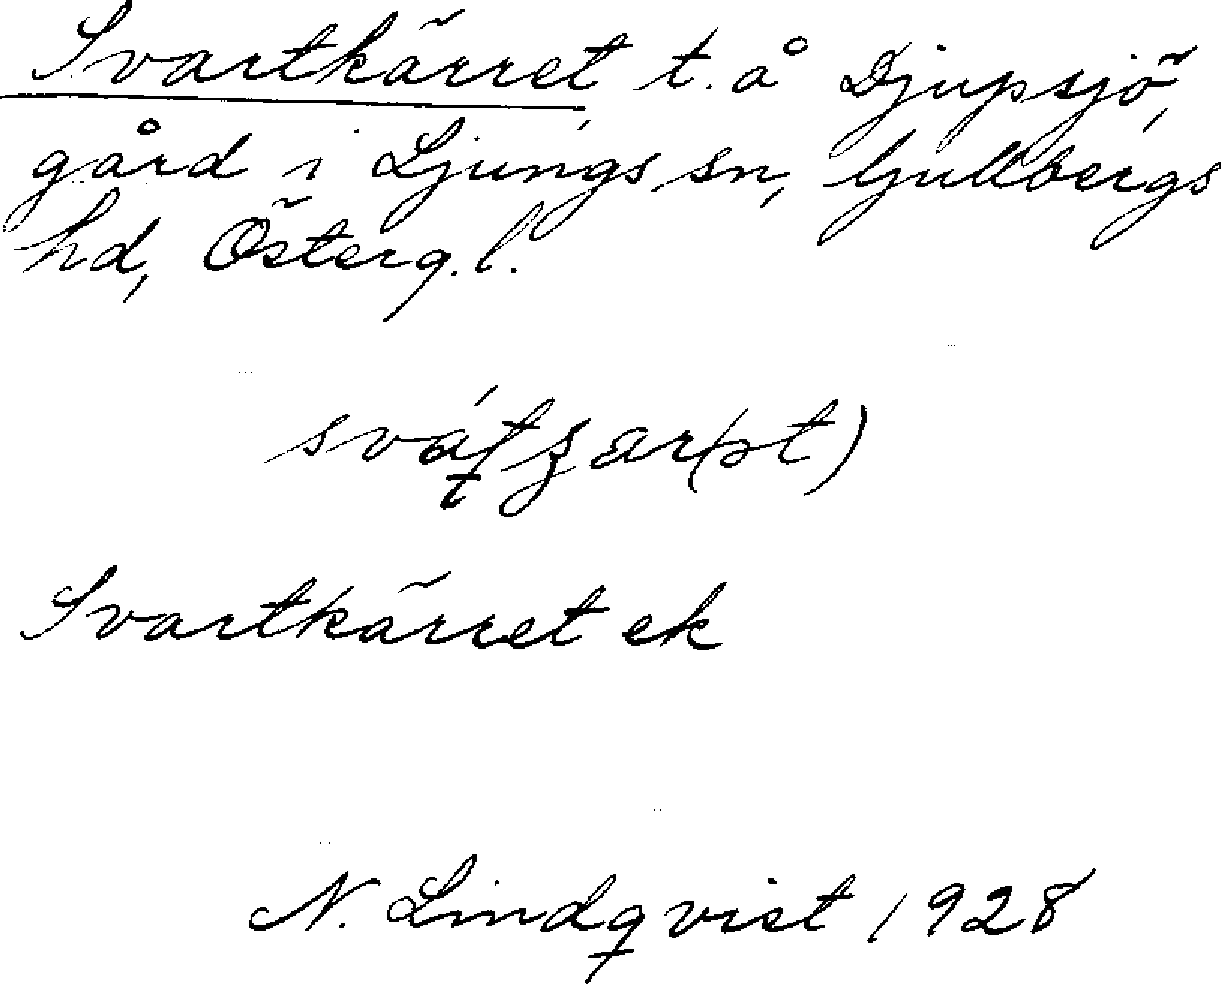 Svartkärret, t. å Djupsjö,
gård i Ljungs sn, Gullbergs
hd, Österg.l.
Svartkärret ek
N. Lindqvist 1928